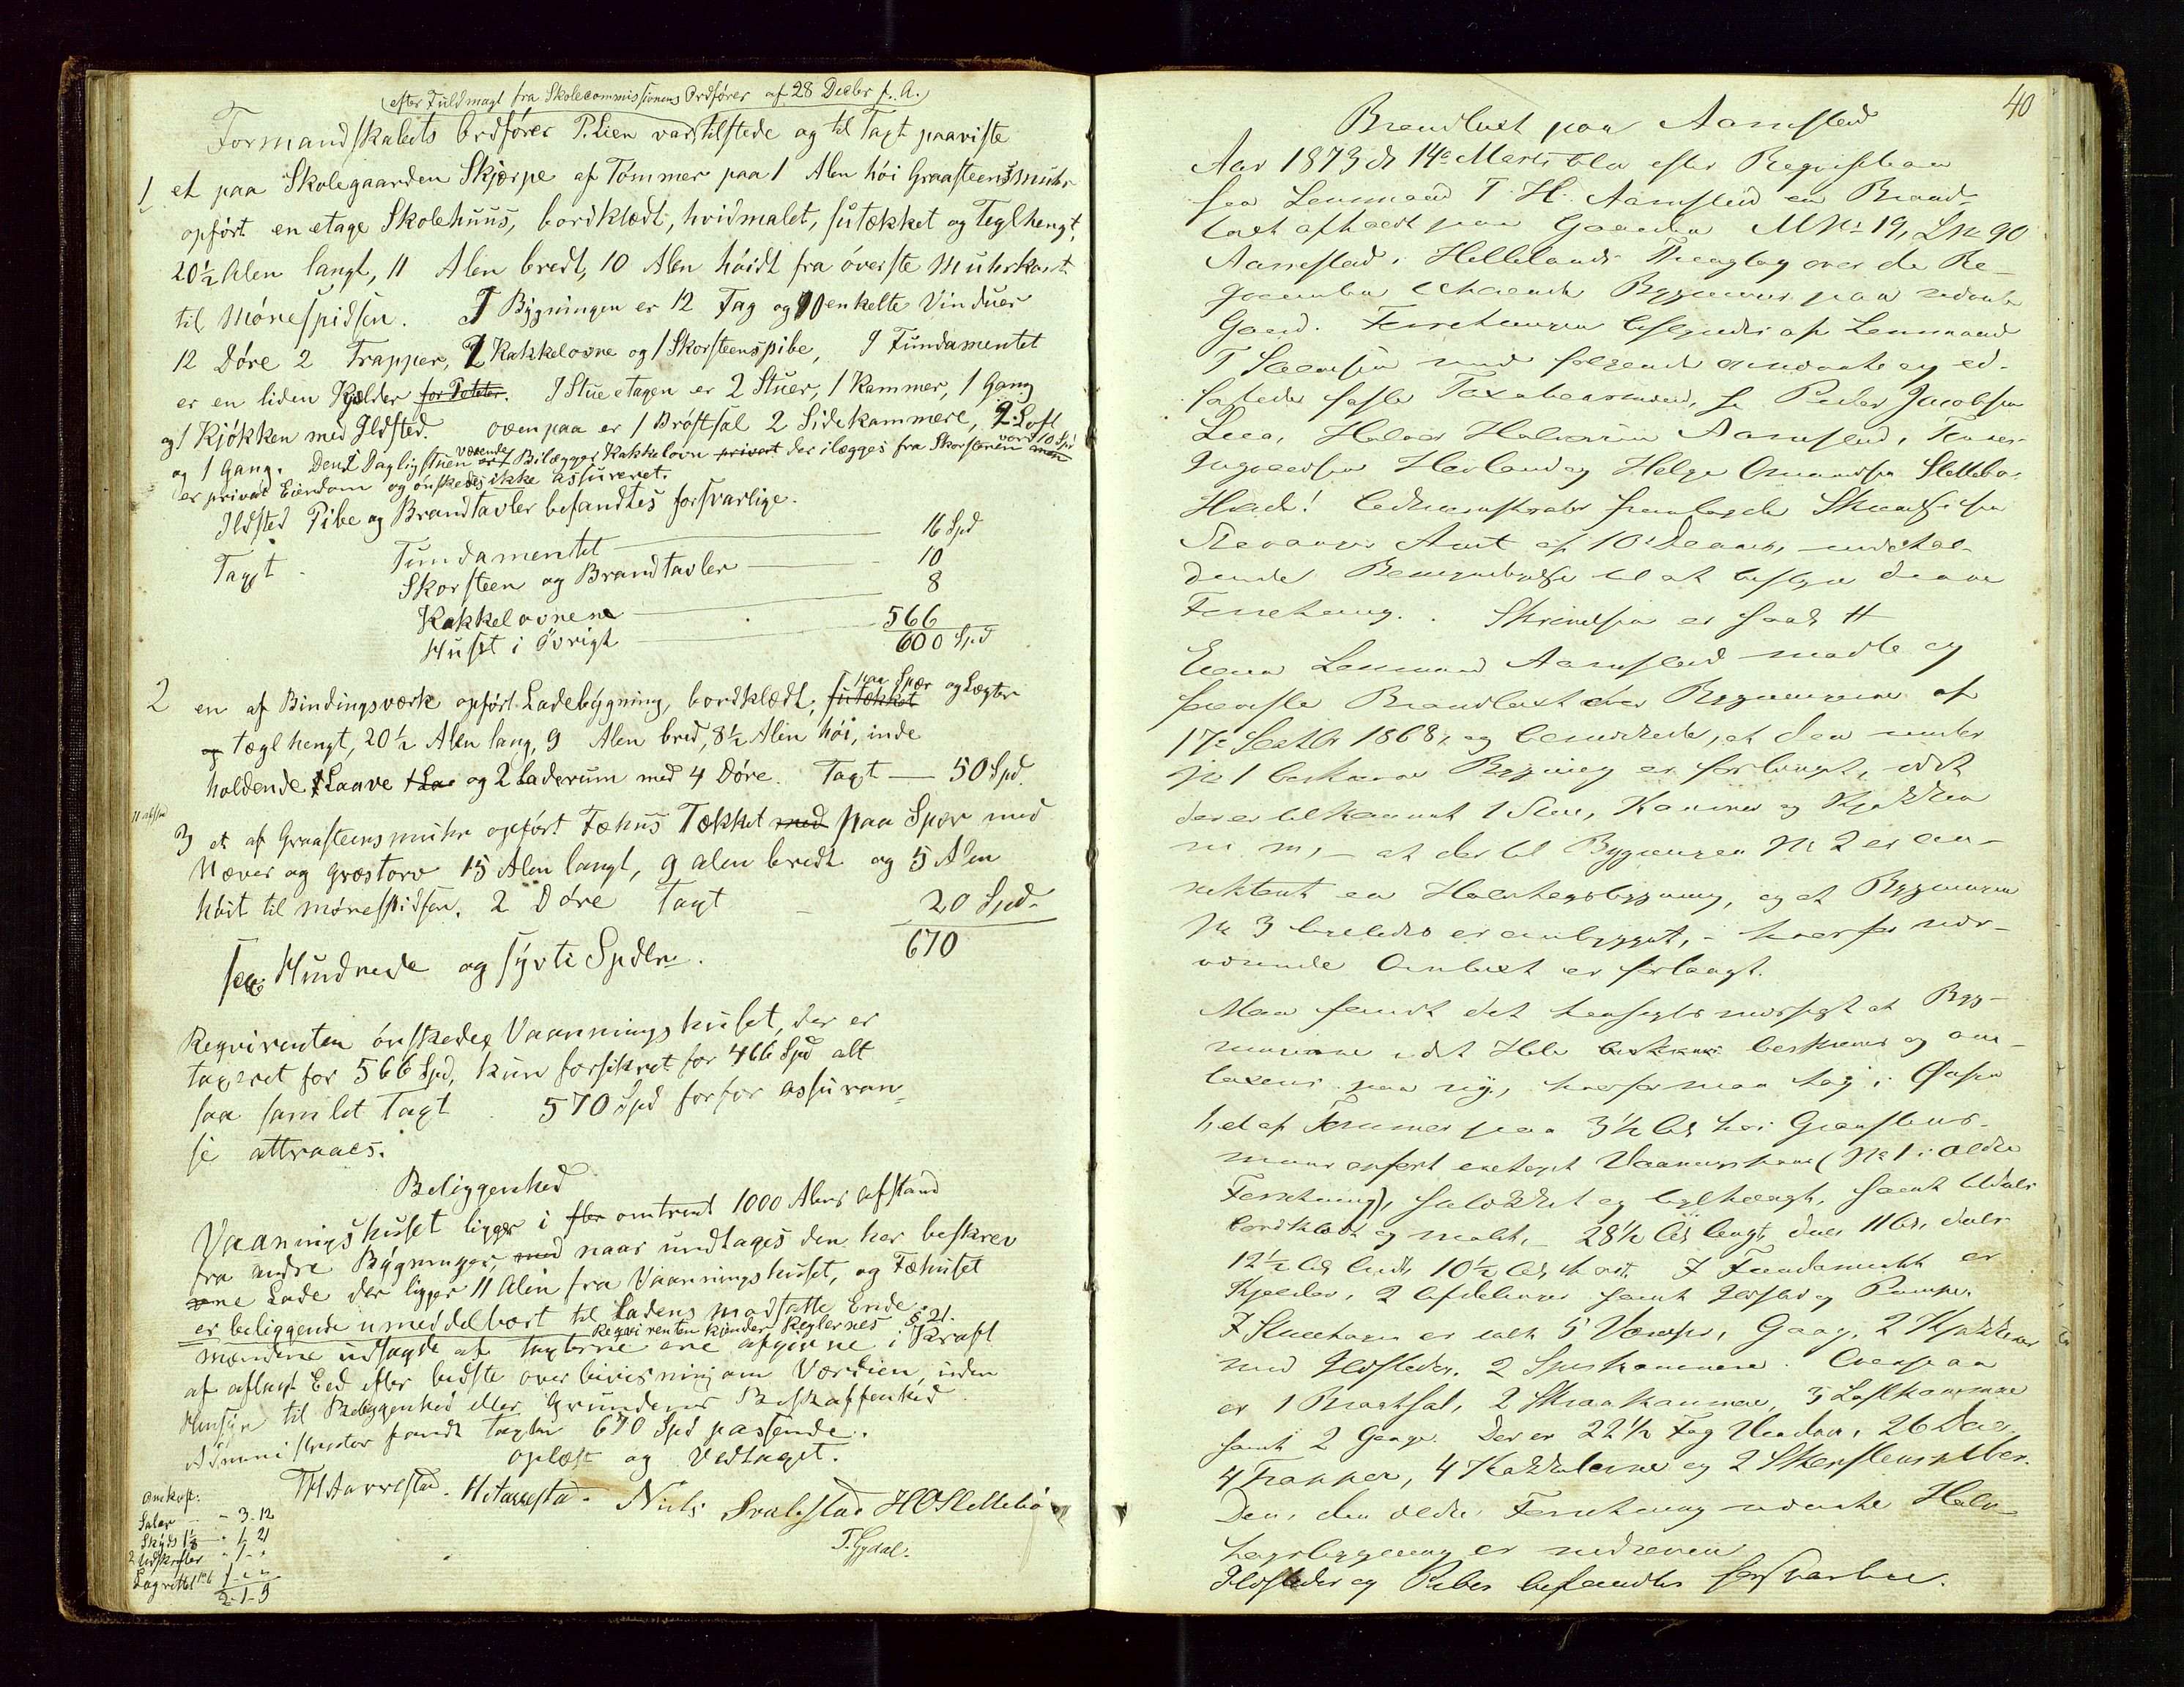 (efter Fuldmagt fra Skolecommissionens Ordfører af 28 Decbr f. A.)
Formandskabets Ordfører P. Lien var tilstede og til Taxt paaviste
1 et paa Skolegaarden Skjerpe af Tömmer paa 1 Alen höi Graasteensmuhr
opfört en etage Skolehuus, bordklædt, hvidmalet, sutækket og Teglhengt,
20½ Alen langt, 11 Alen bredt, 10 Alen höidt fra överste Muhrkant
til Mönespidsen. I Bygningen er 12 Fag og 10 enkelte Vinduer
12 Döre 2 Trapper, 2 Kakkelovne og 1 Skorsteenspibe, I Fundamentet
er en liden Kjelder for Poteter. I Stueetagen er 2 Stuer, 1 Kammer, 1 Gang
og 1 Kjökken med Ildsted. ovenpaa er 1 Bröstsal 2 Sidekammere, 2 Loft
og 1 Gang. Den i Dagligstuen værende er 1 Bilægger Kakkelovn privat der ilægges fra Skorstenen værd 10 Spd men
er privat Eiendom og önskedes ikke assureret.
Ildsted Pibe og Brandtavler befandtes forsvarlige.
Taxt Fundamentet 16 Spd
Skorsteen og Brandtavler 10
Kakkelovnene 8
Huset i övrigt 566
600 Spd
2 en af Bindingsværk opfört Ladebygning, bordklædt, sutækket paa Spær og Lægter
og tæglhengt, 20½ Alen lang, 9 Alen bred, 8½ Alen höi, inde
holdende 1 Laave 1 La og 2 Laderum med 4 Döre. Taxt — 50 Spd
3 et af Graasteensmuhr opfört Fæhus Tækket med paa Spær med
Næver og græstorv 15 Alen langt, 9 alen bredt og 5 Alen
höit til mönespidsen. 2 Döre Taxt 20 Spd
670
sex Hundrede og sytti Spdlr.
Reqvirenten önskedes Vaaningshuset, der er
taxeret for 566 Spd, kun forsikret for 466 Spd alt
saa samlet Taxt 570 Spd for assuran-
se attraaes.
Beliggenhed
Vaaningshuset ligger i fler omtrent 1000 Alens afstand
fra andre Bygninger, med naar undtages den her beskrev
ene Lade der ligger 11 Alen fra Vaaningshuset, og Fæhuset
er beliggende umeddelbart til Ladens modsatte Ende.
Reqvirenten kjender Reglernes § 21.
Mændene udsagde at taxterne ere afgivne i Kraft
af aflagt Eed efter bedste overbeviisning om Værdien, uden
Hensyn til Beliggenhed eller Grundenes Beskaffenhed
Administrator fandt taxten 670 Spd passende.
oplæst og Vedtaget.
TH Aarrestad. H. Aarrestad. Niels Svalestad H O Slettebö
T. Gydal.
Omkost:
Salær - 3.12
Skyds 1⅛ - 1. 21
2 Udskrifter - 1 -
Lagrettet 1 - -
2-1-9
40
Brandtaxt paa Aarrestad
Aar 1873 d. 14e Marts blev efter Reqvisition
fra Lensmand T. H. Aarrestad en Brand-
taxt afholdt paa Gaarden M No 19, L No 90
Aarrestad i Hellelands Thinglag over de Re-
qvirenten tilhörende Bygninger paa nævnte
Gaard. Forretningen bestyredes af Lensmand
T Svendsen med følgende opnævnte og ed-
fæstede faste Taxationsmænd, so Peder Jacobsen
Liea, Halvor Halvorsen Aarrestad, Tønnes
Ingvaldsen Havland og Helge Omundsen Slettebø.
Hvad! Administrator fremlagde Skrivelse fra
Stavanger Amt af 10 Dennes, indehol-
dende Bemyndigelse til at bestyre denne
Forretning. Skrivelsen er saal. #
Eieren Lensmand Aarrestad mødte og
foreviste Brandtaxt over Bygningerne af
17e Septbr 1868, og bemærkede, at den under
No 1 beskrevne Bygning er forlænget, idet
der er tilkommet 1 Stue, Kammer og Kjøkken
m. m, – at der til Bygningen No 2 er an-
rektent en Halvtagsbygning, og at Bygningen
No 3 ligeledes er ombygget, – hvorfor nær-
værende Omtaxt er forlangt.
Man fandt det hensigtsmæssigt at Byg-
ningerne i det Hele beskrives og om-
taxeres paa ny, hvorfor man tog i Øiesyn
1, et af Tømmer paa 3½ Al. høi Graastens-
muur opført enetages Vaaningshuus (No 1 i ældre
Forretning), sutækket og teglhængt, samt tildels
bordklædt og malet, – 28½ Al. langt, dels 11 Al. dels
12½ Al. bredt 10½ Al. høit. I Fundamentet er
Kjælder, 2 Afdelinger samt Ildsted og Pumpe.
I Stueetagen er ialt 5 Værelser, Gang, 2 Kjøkkener
med Ildsteder, 2 Spiskammere. Ovenpaa
er 1 Brøstsal, 2 Skraakammere, 3 Loftkammere
samt 2 Gange. Der er 22½ Fag Vinduer, 26 Døre,
4 Trapper, 4 Kakkelovne og 2 Skorstenspiber.
Den i den ældre Forretning nævnte Halv-
tagsbygning er nedreven
Ildsteder og Piber befandtes forsvarlige.